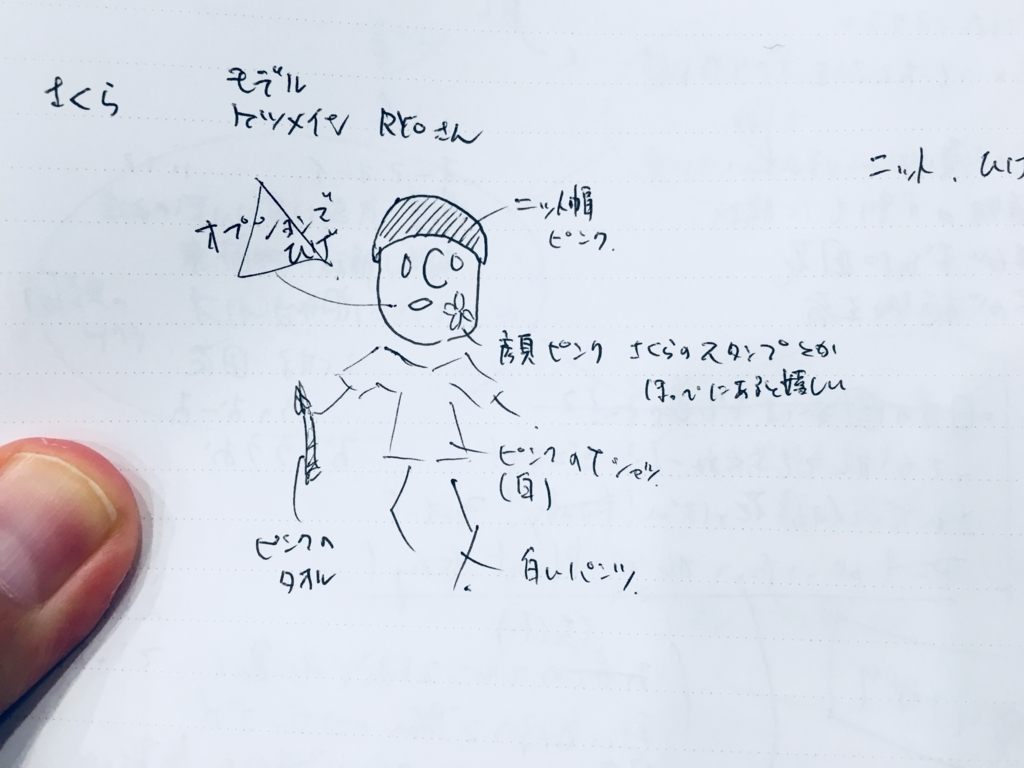 さくら
モデル
ケツメイシ RYOさん
ニット、ひげ
オプションで
ひげ
ニット帽
ピンク.
顔ピンク さくらのスタンプとか
ほっぺにあると嬉しい
ピンクのTシャツ
(白)
ピンクの
タオル
白いパンツ.